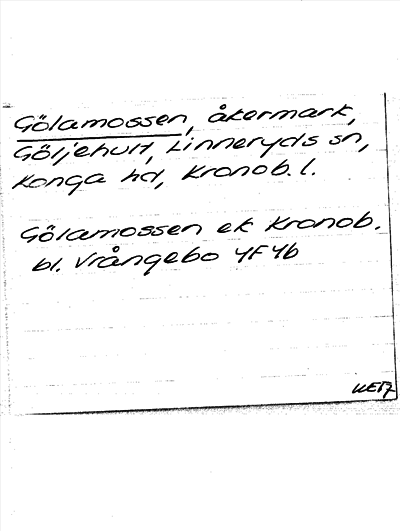 Gölamossen, åkermark,
Göljehult, Linneryds sn,
Konga hd, Kronob. l.
Gölamossen ek Kronob.
bl. Vrångebo 4F4b